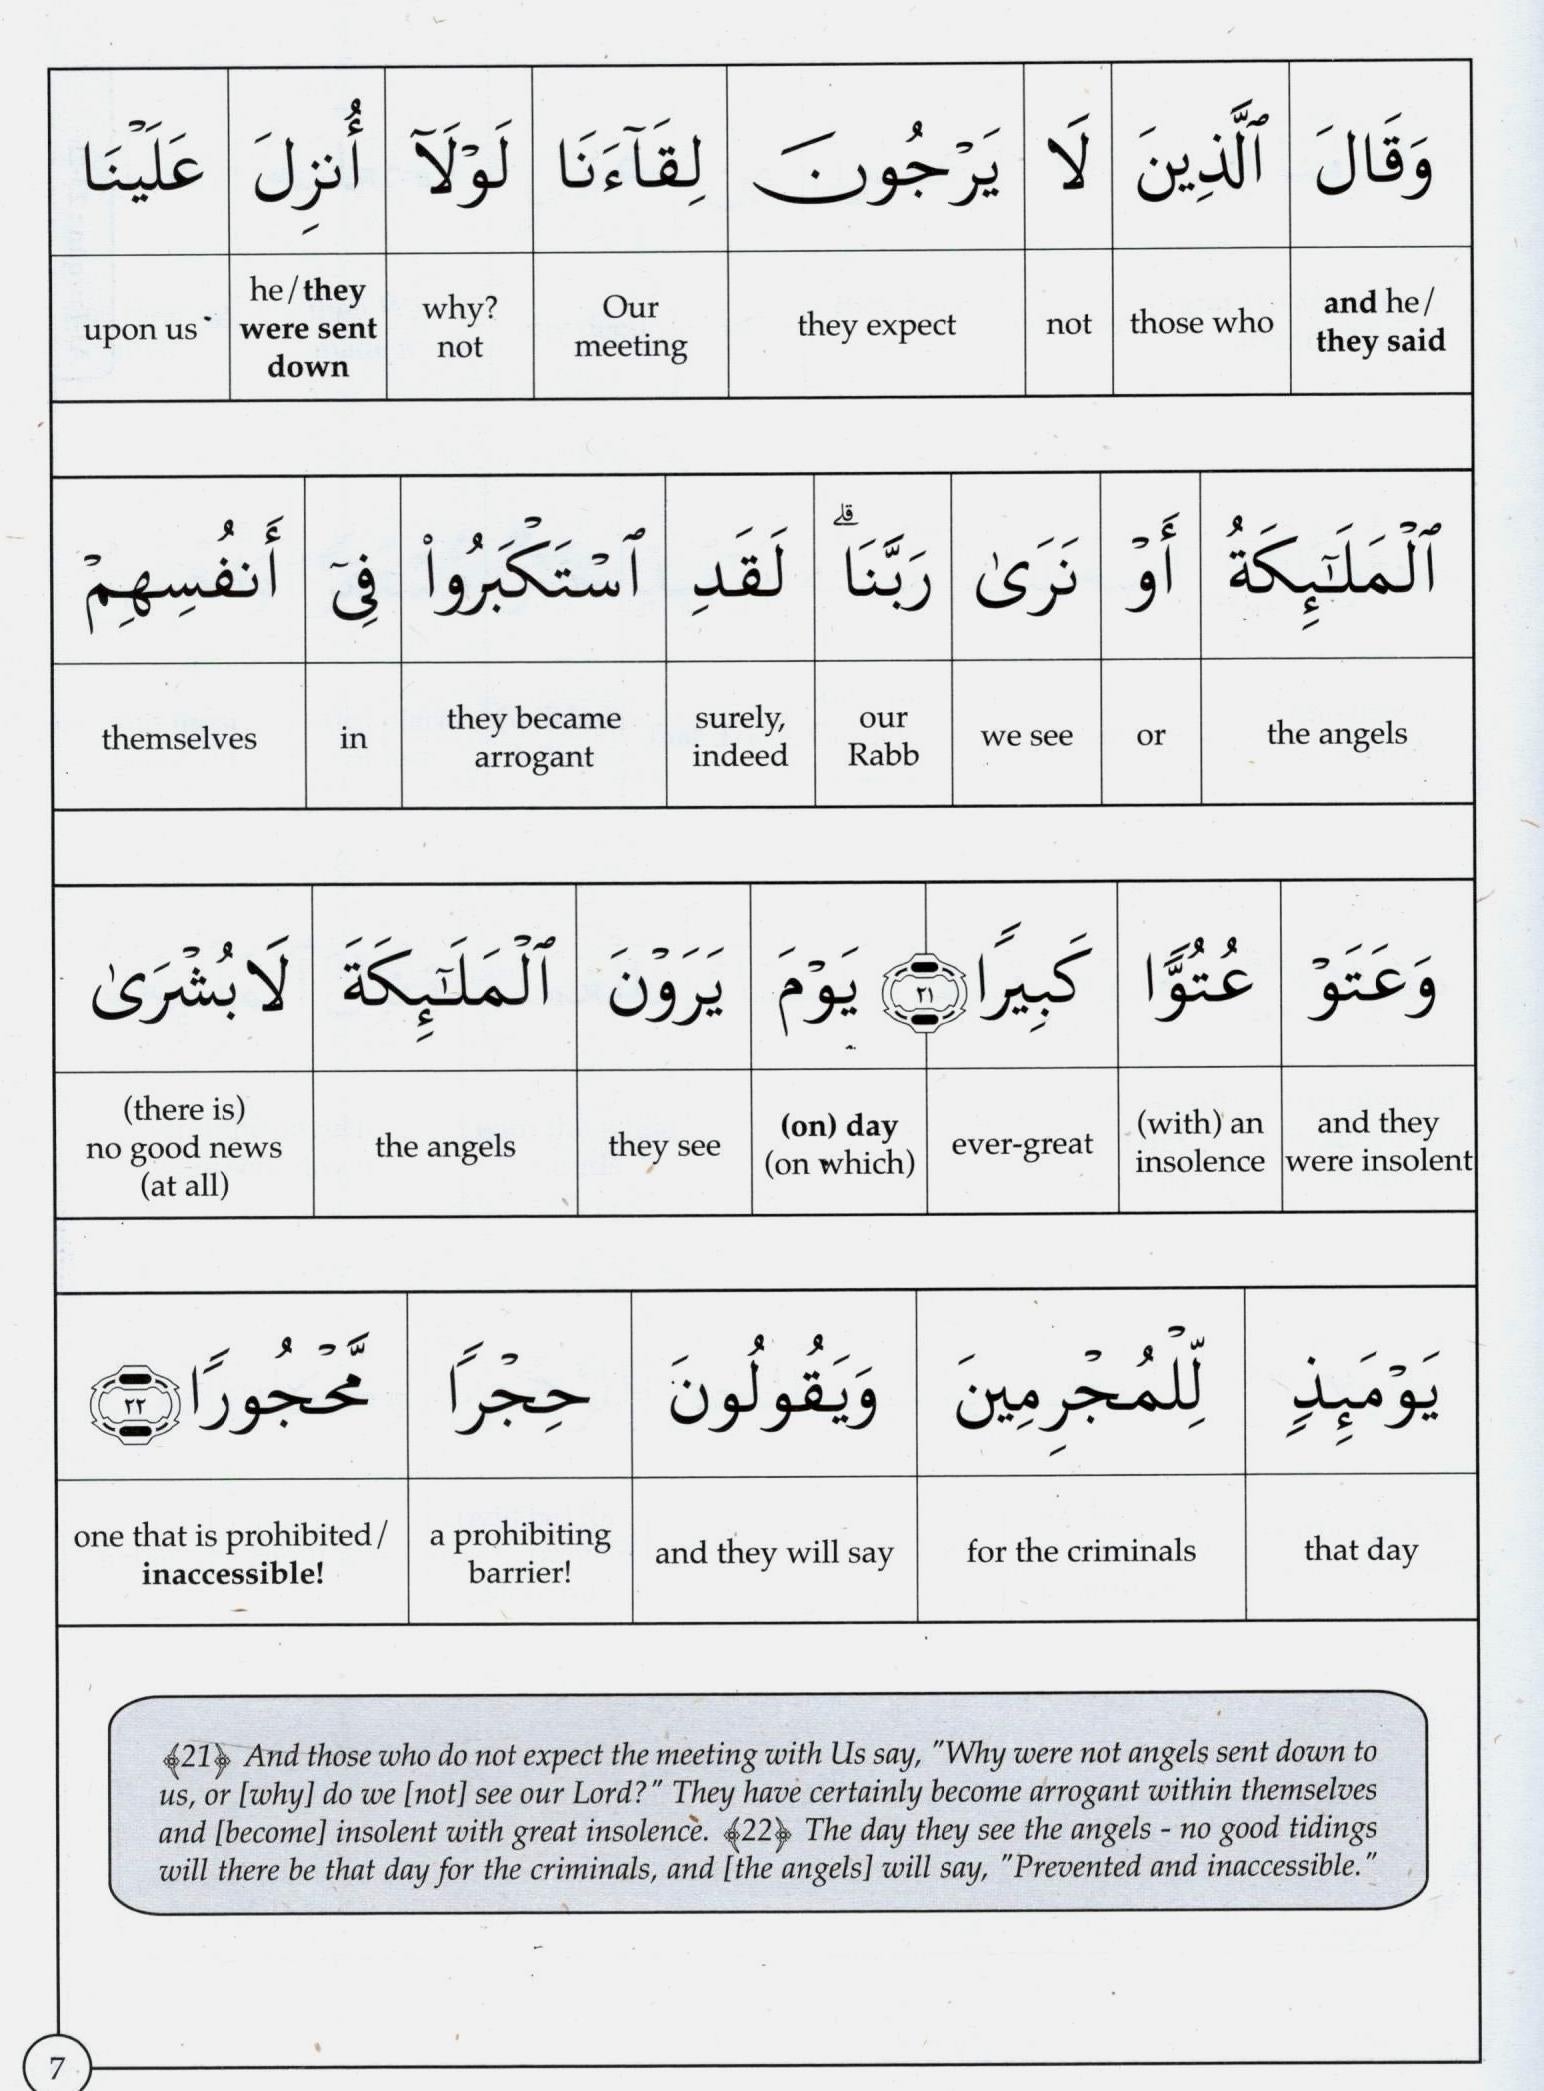 وَقَالَ ٱلَّذِينَ لَا يَرْجُونَ لِقَآءَنَا لَوْلَآ أُنزِلَ عَلَيْنَا
and he/ they said those who not they expect Our meeting why? not he/they were sent down upon us
ٱلْمَلَـٰٓئِكَةُ أَوْ نَرَىٰ رَبَّنَا ۗ لَقَدِ ٱسْتَكْبَرُوا۟ فِىٓ أَنفُسِهِمْ
the angels or we see our Rabb surely, indeed they became arrogant in themselves
وَعَتَوْ عُتُوًّا كَبِيرًا ٢١ يَوْمَ يَرَوْنَ ٱلْمَلَـٰٓئِكَةَ لَا بُشْرَىٰ
and they were insolent (with) an insolence ever-great (on) day (on which) they see the angels (there is) no good news (at all)
يَوْمَئِذٍ لِّلْمُجْرِمِينَ وَيَقُولُونَ حِجْرًا مَّحْجُورًا ٢٢
that day for the criminals and they will say a prohibiting barrier! one that is prohibited/ inaccessible!
﴾21﴿ And those who do not expect the meeting with Us say, "Why were not angels sent down to
us, or [why] do we [not] see our Lord?" They have certainly become arrogant within themselves
and [become] insolent with great insolence. ﴾22﴿ The day they see the angels - no good tidings
will there be that day for the criminals, and [the angels] will say, "Prevented and inaccessible."
7